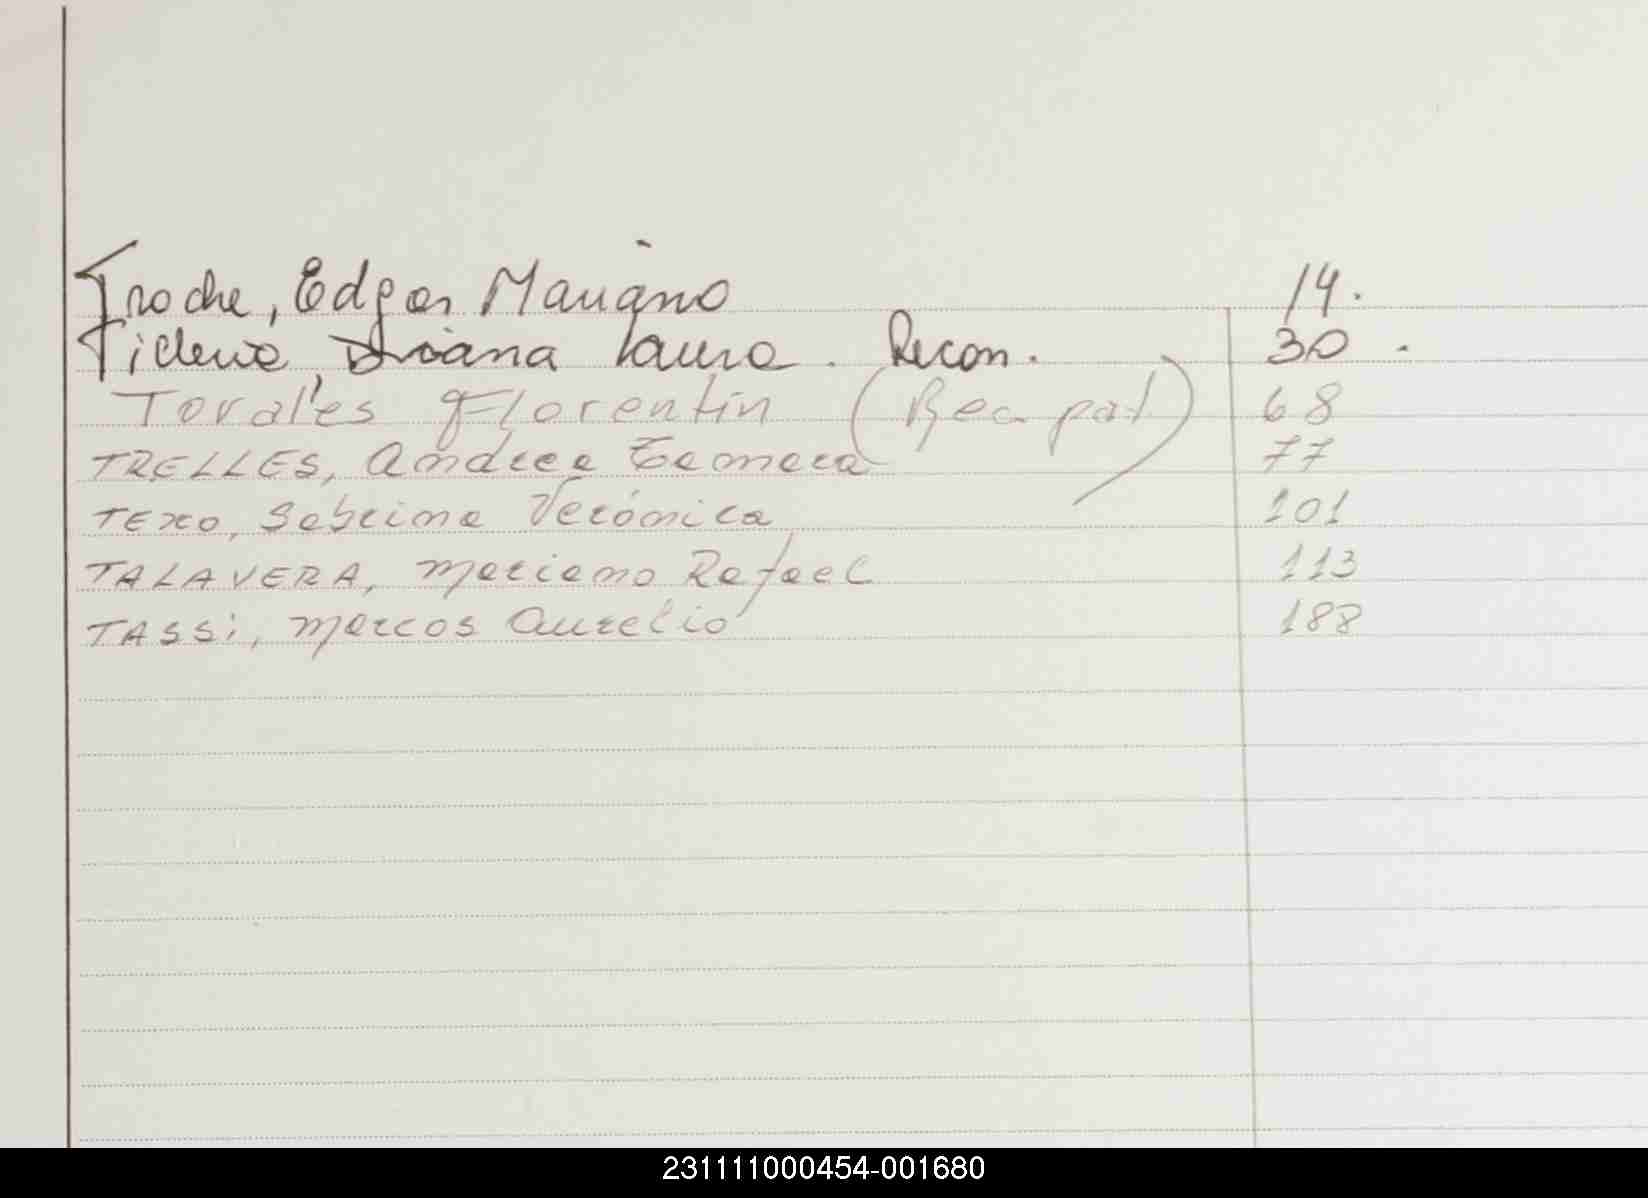 Troche, Edgar Mariano 14.
Diana Laura. Recon. 30.
Torales Florentin (Rec pat) 68
TRELLES, Andrea 77
TEXO, Sabrina Verónica 101
TALAVERA, Mariano Rafael 113
TASSi, Marcos Aurelio 188
231111000454-001680